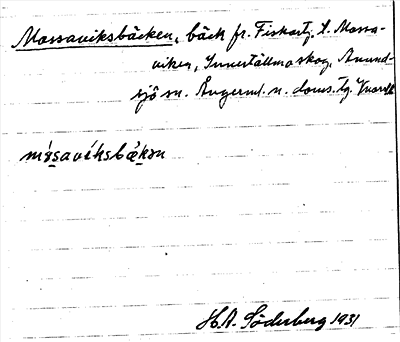 Mossaviksbäcken, bäck fr. Fiskartj. t. Mossa-
viken, Innertällmo skog, Anund-
sjö sn. Ångerml. n. doms. tg.
mósavíksbäkən
H.A. Söderberg 1931